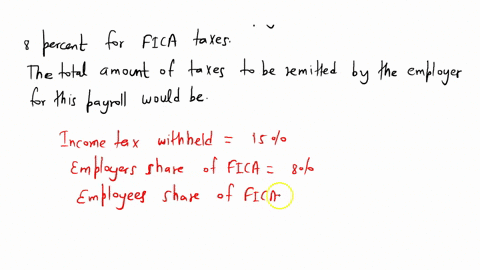 8 percent for FICA taxes.
The total amount of taxes to be remitted by the employer
for this payroll would be.
Income tax withheld = 15%
Employers share of FICA = 8%
Employees share of FICA